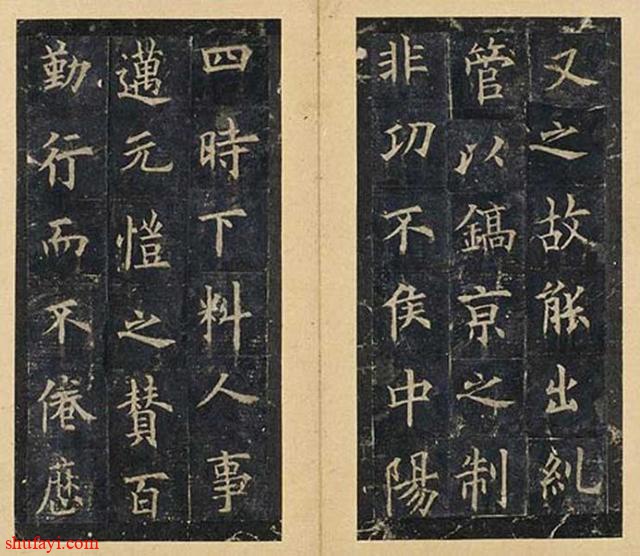 又之故能出糺
管以鎬京之制
非㓛不侯中陽
四時下料人事
邁元愷之賛百
勤行而不倦庶
shufayi.com